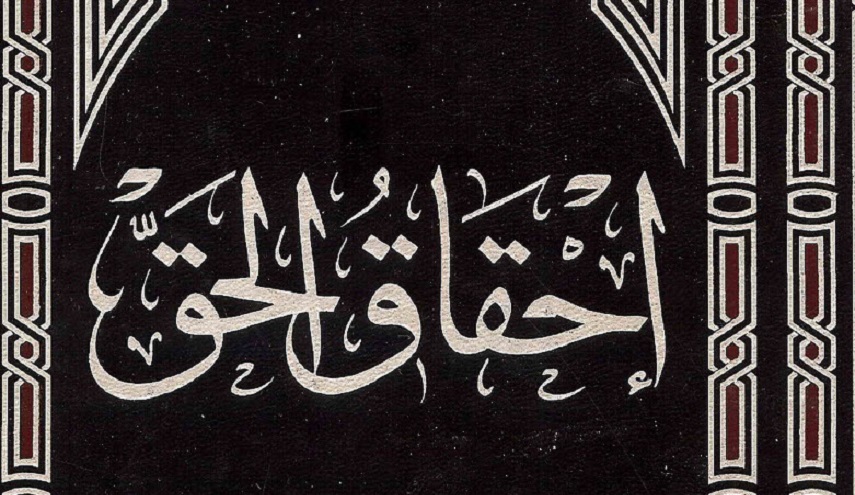 إحْقَاقُ الحَقِّ